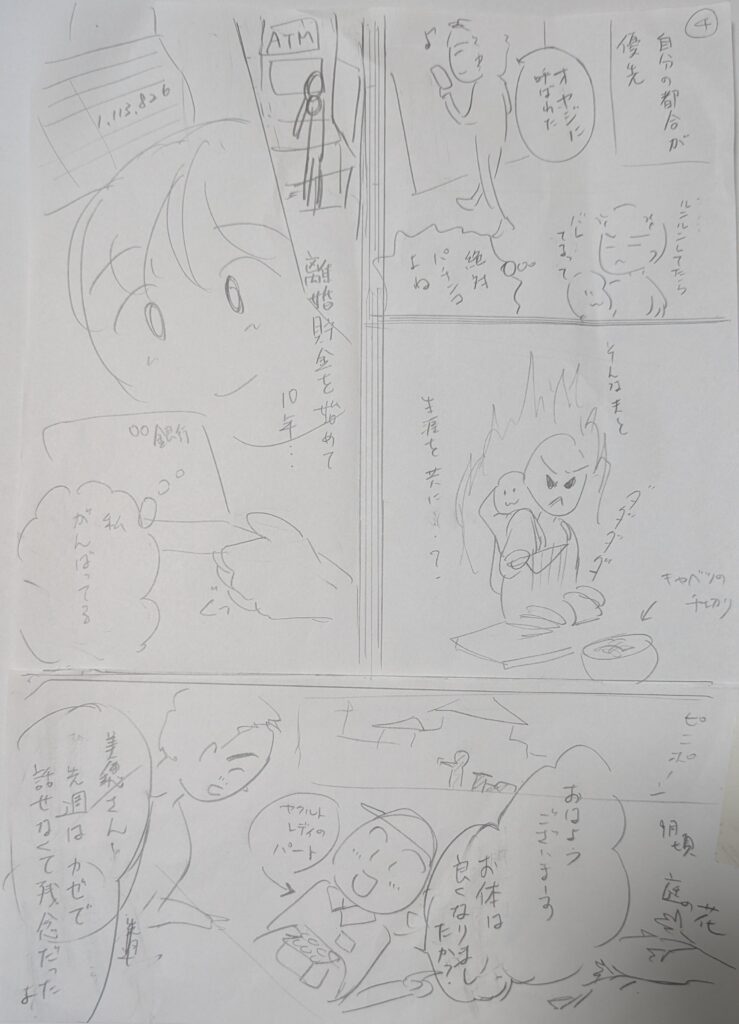 4
自分の都合が
優先
オヤジに
呼ばれた
♪
ルンルンしてたら
バレ
てるって
絶対
パチンコ
よね
そんな夫と
生涯を共に…?
ダダダダ
キャベツの
千切り
ATM
1,113,826
離婚貯金を始めて
10年…
〇〇銀行
私
がんばってる
ぐっ
ピンポーン
9月頃
庭の花
おはよう
ございまーす
お体は
良くなりまし
たか?
ヤクルト
レディの
パート
さん!
先週はカゼで
話せなくて残念だった
よ